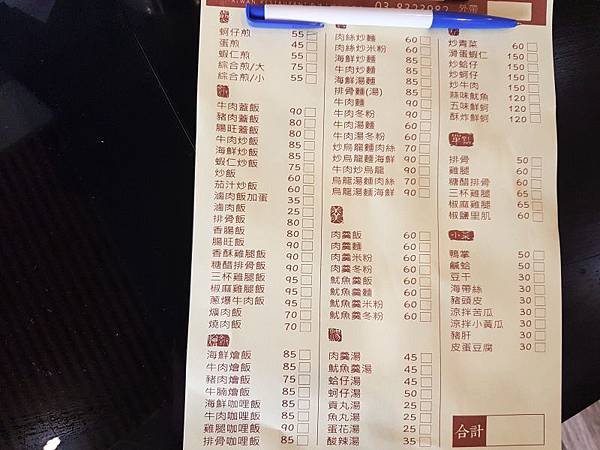 TAIWAN RESTAURANT
03-8323982 外帶
蚵仔煎 55
蛋煎 45
蝦仁煎 55
綜合煎/大 75
綜合煎/小 55
飯
牛肉蓋飯 90
豬肉蓋飯 80
腸旺蓋飯 80
牛肉炒飯 85
海鮮炒飯 85
蝦仁炒飯 75
炒飯 60
茄汁炒飯 60
滷肉飯加蛋 35
滷肉飯 25
排骨飯 80
香腸飯 80
腸旺飯 90
香酥雞腿飯 90
糖醋排骨飯 90
三杯雞腿飯 95
椒麻雞腿飯 95
蔥爆牛肉飯 95
爌肉飯 70
燒肉飯 70
海鮮燴飯 85
牛肉燴飯 85
豬肉燴飯 75
牛腩燴飯 85
海鮮咖哩飯 85
牛肉咖哩飯 85
雞腿咖哩飯 90
排骨咖哩飯 85
肉絲炒麵 60
肉絲炒米粉 60
海鮮炒麵 85
牛肉炒麵 85
海鮮湯麵 85
排骨麵(湯) 85
牛肉麵 90
牛肉冬粉 90
牛肉湯麵 60
牛肉湯冬粉 60
炒烏龍麵肉絲 70
炒烏龍麵海鮮 90
牛肉炒烏龍 90
烏龍湯麵肉絲 70
烏龍湯麵海鮮 90
羹
肉羹飯 60
肉羹麵 60
肉羹米粉 60
肉羹冬粉 60
魷魚羹飯 60
魷魚羹麵 60
魷魚羹米粉 60
魷魚羹冬粉 60
湯
肉羹湯 45
魷魚羹湯 45
蛤仔湯 45
蚵仔湯 60
貢丸湯 25
魚丸湯 25
蛋花湯 25
酸辣湯 35
炒青菜 60
滑蛋蝦仁 150
炒蛤仔 150
炒蚵仔 150
炒牛肉 150
蒜味魷魚 120
五味鮮蚵 120
酥炸鮮蚵 120
單點
排骨 50
雞腿 60
糖醋排骨 60
三杯雞腿 65
椒麻雞腿 65
椒鹽里肌 60
小菜
鴨掌 50
鹹蛤 50
豆干 30
海帶絲 30
豬頭皮 30
涼拌苦瓜 30
涼拌小黃瓜 30
豬肝 30
皮蛋豆腐 30
合計